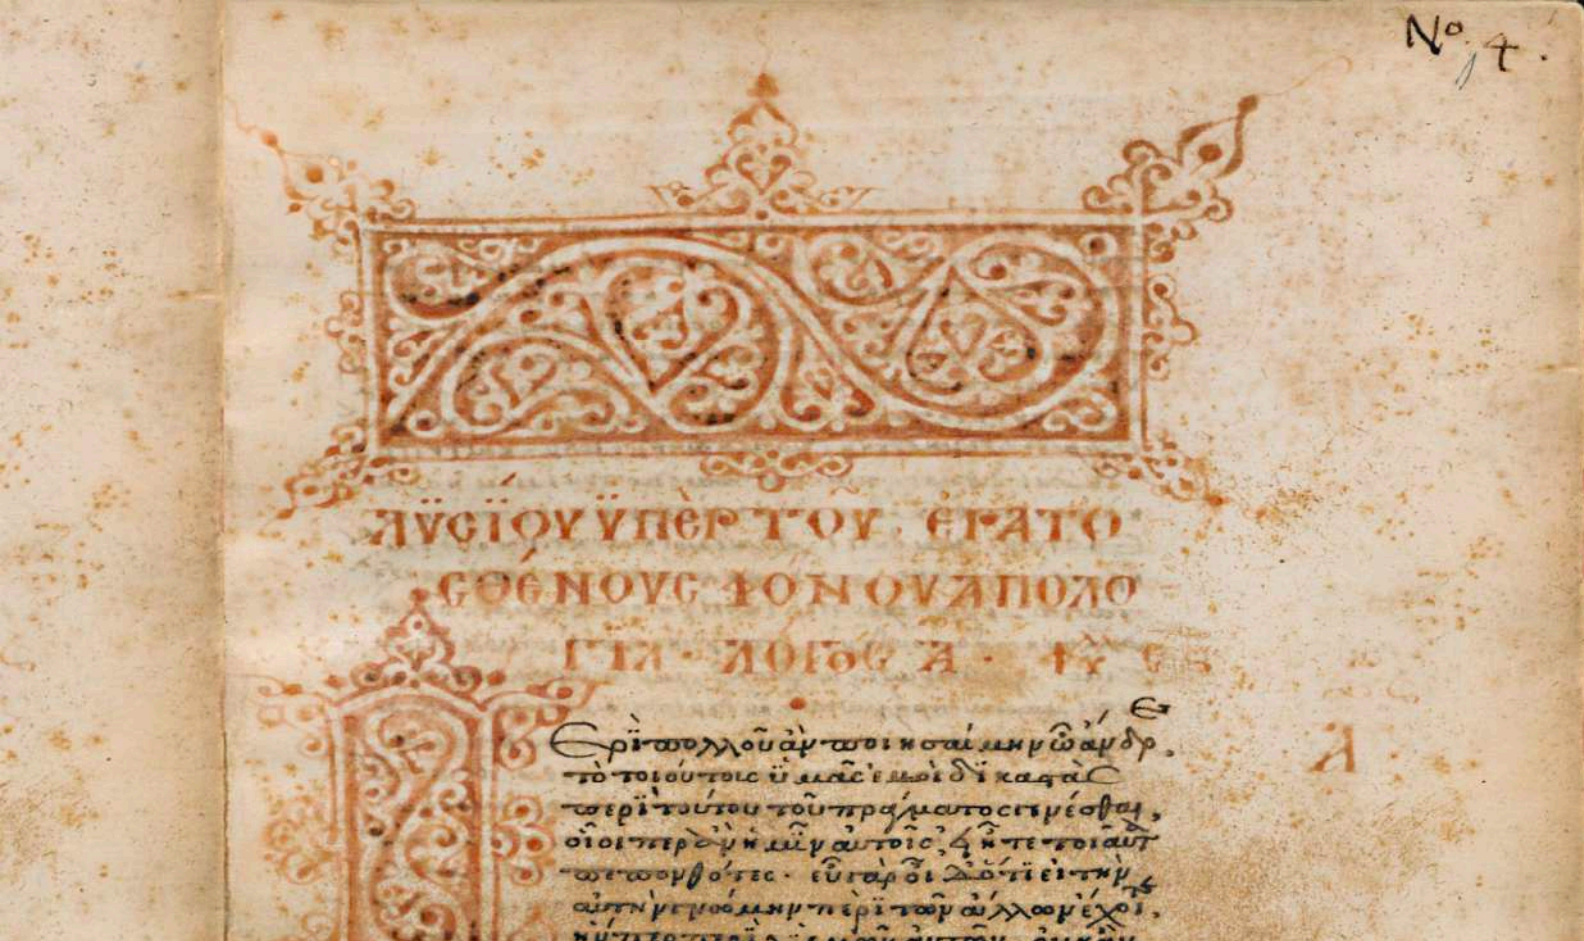 Nο. 4.
ΛΫCΪΟΥ ΫΠῈΡ ΤΟΥ͂. ἘΡΑΤΟ
CΘΈΝΟΥC ΦΟΝΟΥ ἈΠΟΛΟ
ΓΪΑ · ΛΌΓΟC Α ·
Ερὶ πολλοῦ ἂν ποιησαίμην ὦ ἄνδρ
τὸ τοιούτοις ὑμᾶς ἐμοὶ δικαστὰς
Α
περὶ τούτου τοῦ πράγματος γενέσθαι,
οἷοι περ ἂν ἡμῖν αὐτοῖς, τοιαῦτ
πεπονθότες · εὖ γὰρ οἶδ ὅτι εἰ τὴν
αὐτὴν γνώμην περὶ τῶν ἄλλων ἔχοι